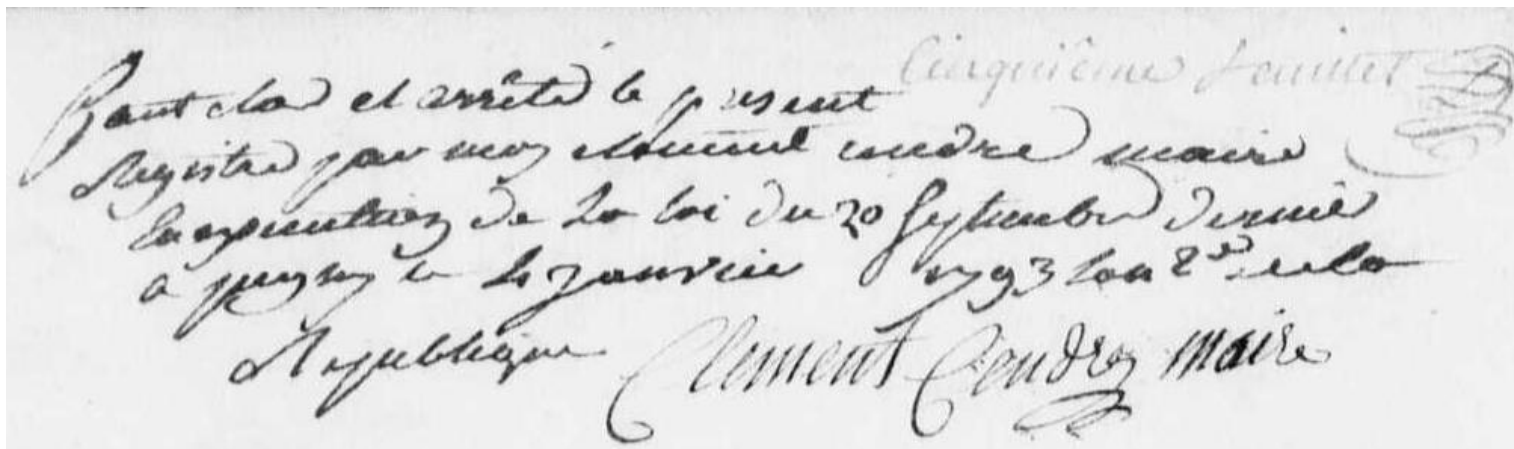 Cinquième feuillet
clos et arrêté le present
Registre par moy Clement Coudre maire
En execution de La loi du 20 Septembre dernié
a le 4 Janvier 1793 Lan 2e de la
Republique Clement Coudre maire